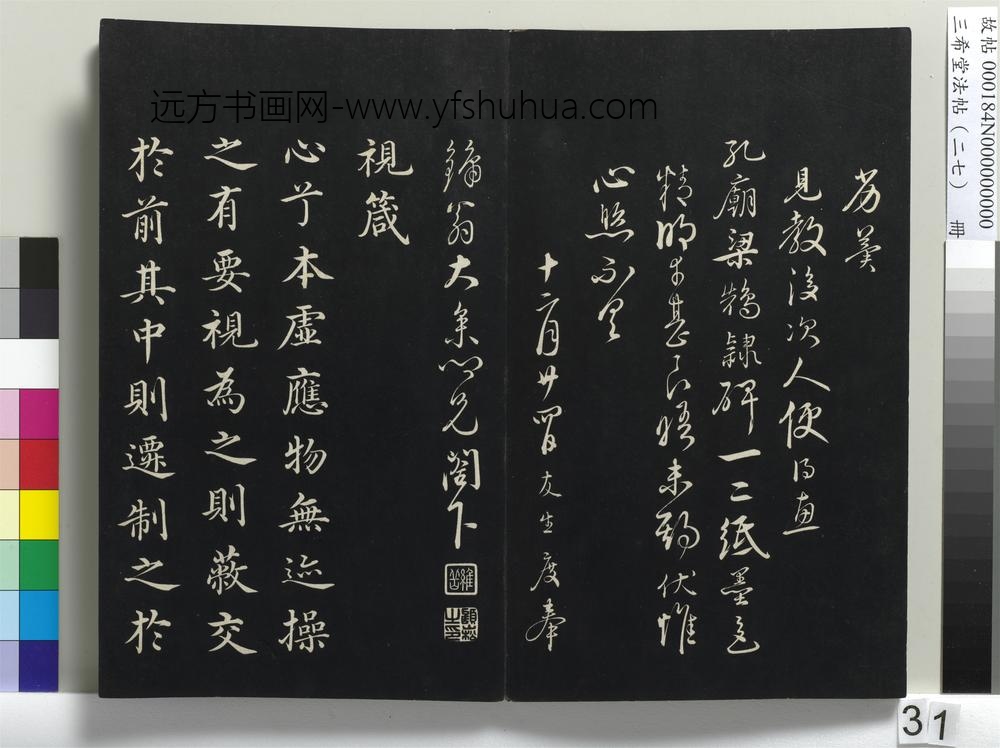 芳羹
見教後次人便得惠
孔廟梁鵠隸碑一二紙墨色
精明者甚良晤未期伏惟
心照不具
十二月廿四日友生度奉
鏞翁大彖心兄閣下
視箴
心兮本虛應物無迹操
之有要視為之則蔽交
於前其中則遷制之於
远方书画网-www.yfshuhua.com
故帖 000184N000000000
三希堂法帖（二七） 冊
31